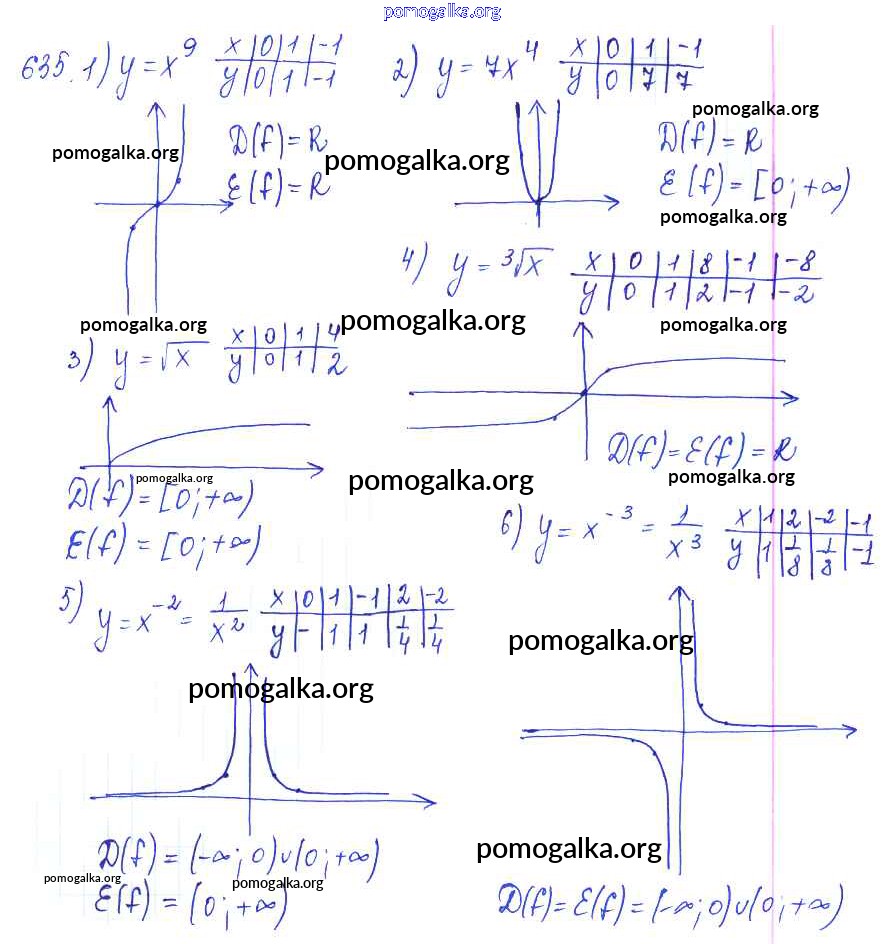 pomogalka.org
635. 1) y = x⁹
x | 0 | 1 | -1
y | 0 | 1 | -1
D(f) = R
E(f) = R
pomogalka.org
pomogalka.org
2) y = 7x⁴
x | 0 | 1 | -1
y | 0 | 7 | 7
pomogalka.org
D(f) = R
E(f) = [0; +∞)
pomogalka.org
3) y = √x
x | 0 | 1 | 4
y | 0 | 1 | 2
pomogalka.org
pomogalka.org
D(f) = [0; +∞)
E(f) = [0; +∞)
4) y = ³√x
x | 0 | 1 | 8 | -1 | -8
y | 0 | 1 | 2 | -1 | -2
pomogalka.org
pomogalka.org
D(f) = E(f) = R
pomogalka.org
pomogalka.org
5) y = x⁻² = 1/x²
x | 0 | 1 | -1 | 2 | -2
y | - | 1 | 1 | 1/4 | 1/4
pomogalka.org
D(f) = (-∞; 0) ∪ (0; +∞)
pomogalka.org
pomogalka.org
E(f) = (0; +∞)
6) y = x⁻³ = 1/x³
x | 1 | 2 | -2 | -1
y | 1 | 1/8 | 1/8 | -1
pomogalka.org
pomogalka.org
D(f) = E(f) = (-∞; 0) ∪ (0; +∞)